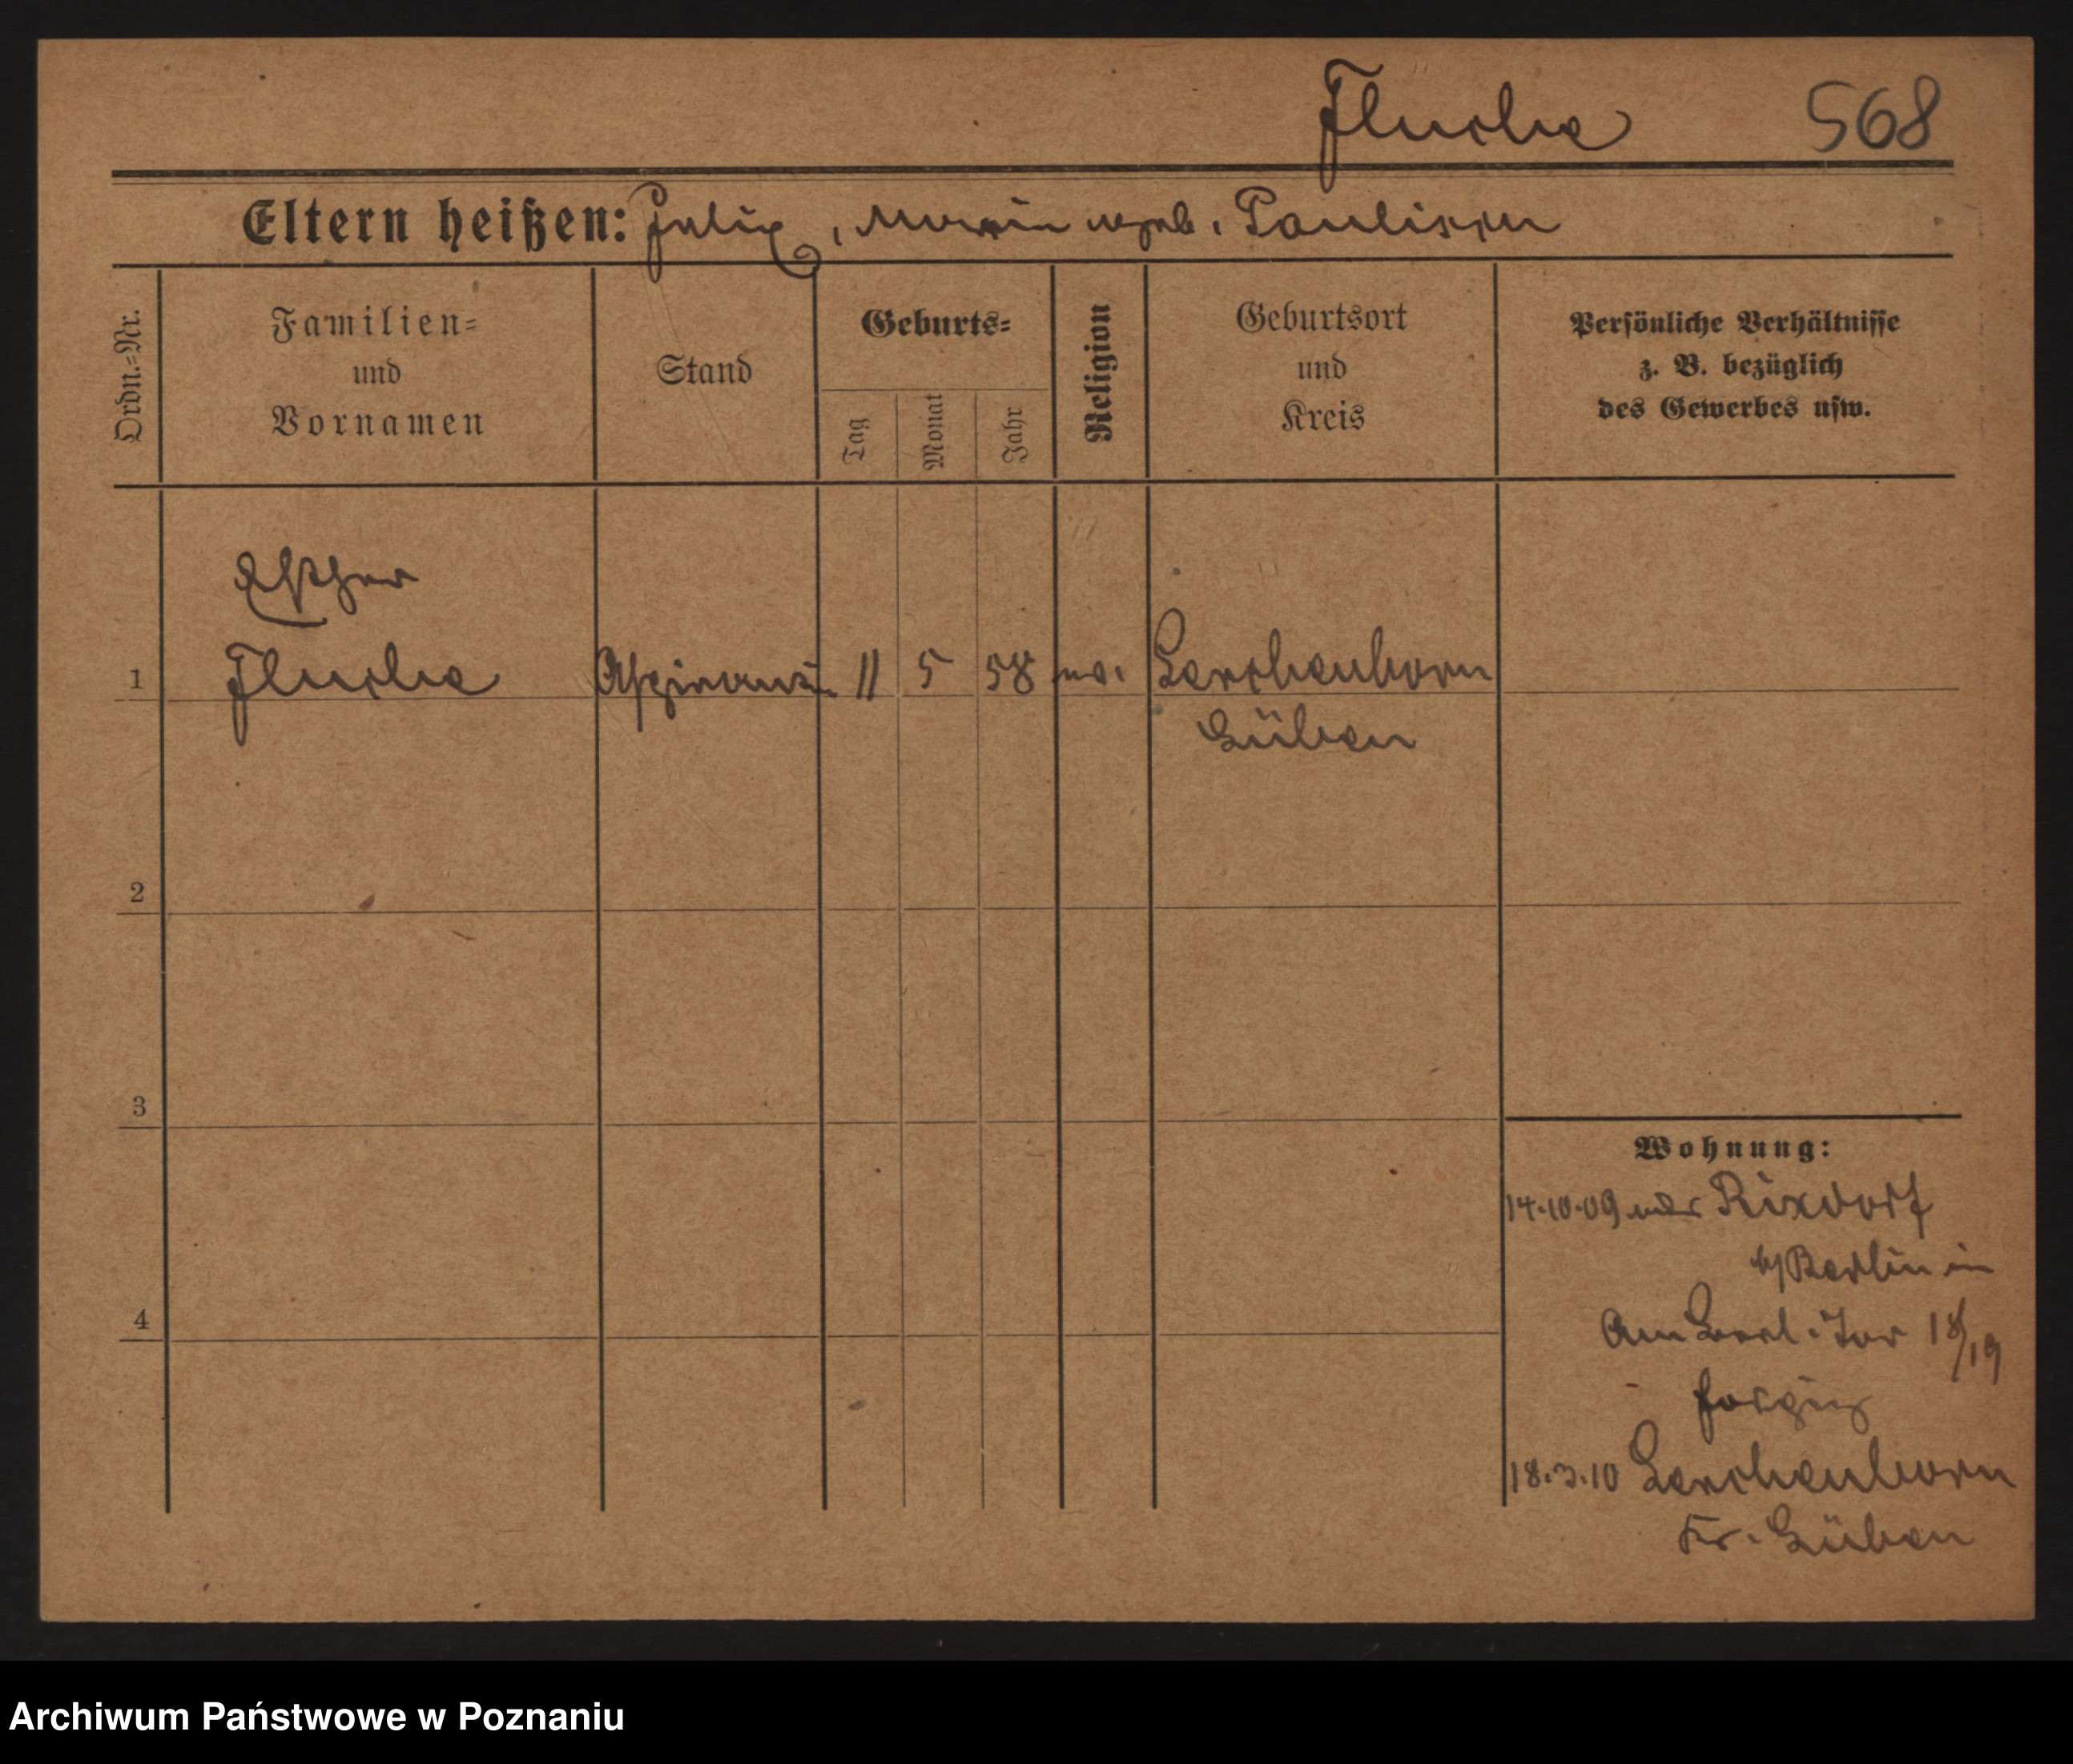 Flucke 568
Eltern heißen: Felix, Maria geb. Paulisch
Ordn.=Nr.
Familien=
und
Vornamen
Stand
Geburts=
Tag
Monat
Jahr
Religion
Geburtsort
und
Kreis
Persönliche Verhältnisse
z. B. bezüglich
des Gewerbes usw.
Esther
1 Flucke 11 5 58 Lerchenborn
Lüben
2
3
4
Wohnung:
14.10.09 Rixdorf
b/Berlin in
Am Berl. Tor 18/19
18.3.10 Lerchenborn
Kr. Lüben
Archiwum Państwowe w Poznaniu